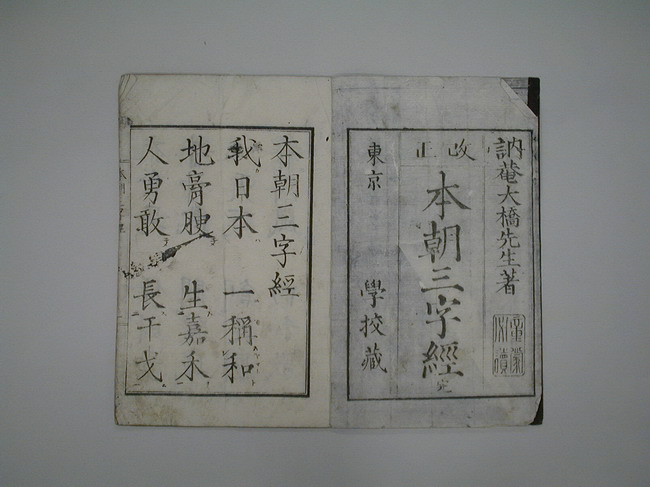 訥菴大橋先生著
改正
本朝三字經
完
東京 學校藏
本朝三字經
我日本 一稱和
地膏腴 生嘉禾
人勇敢 長干戈